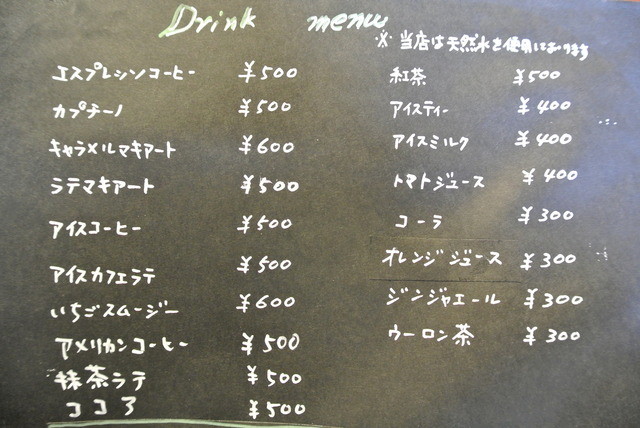 Drink menu
※ 当店は天然水を使用しております
エスプレッソコーヒー ¥500
カプチーノ ¥500
キャラメルマキアート ¥600
ラテマキアート ¥500
アイスコーヒー ¥500
アイスカフェラテ ¥500
いちごスムージー ¥600
アメリカンコーヒー ¥500
抹茶ラテ ¥500
ココア ¥500
紅茶 ¥500
アイスティー ¥400
アイスミルク ¥400
トマトジュース ¥400
コーラ ¥300
オレンジジュース ¥300
ジンジャエール ¥300
ウーロン茶 ¥300